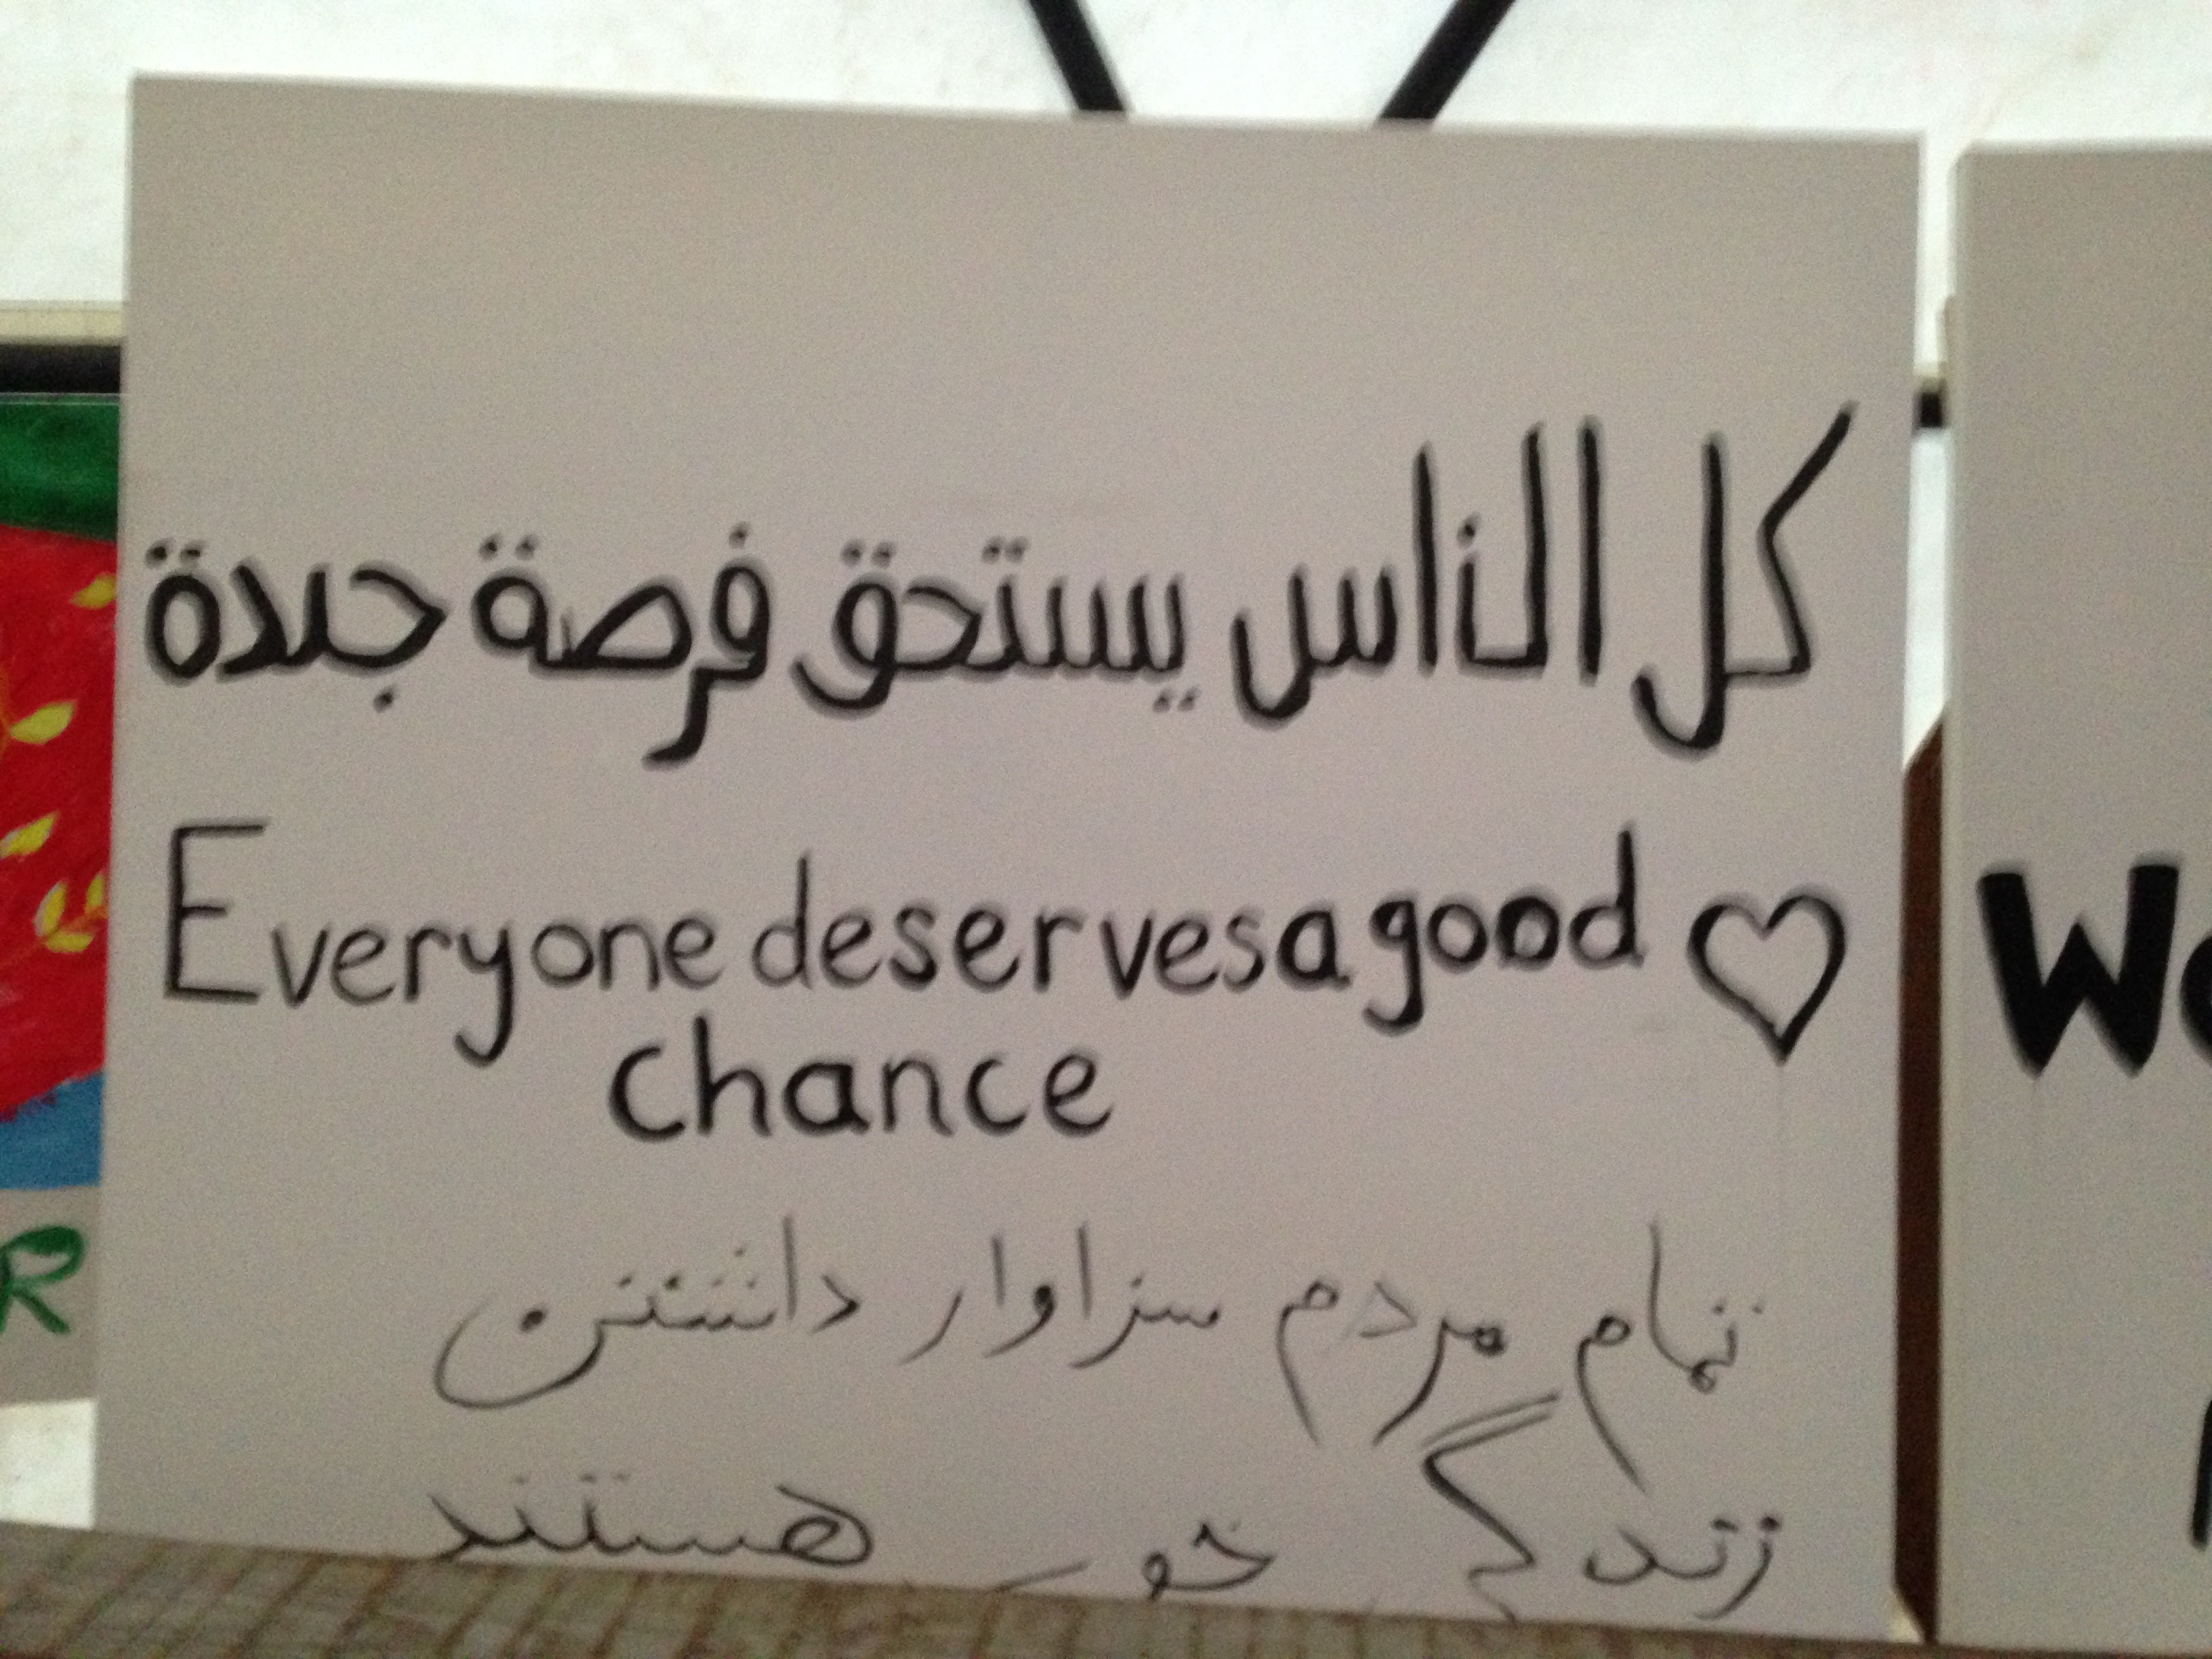 كل الناس يستحق فرصة جىدة
Everyone deserves a good ♡
chance
تمام مردم سزاوار داشتن
زندگی خوب هستند
R
We